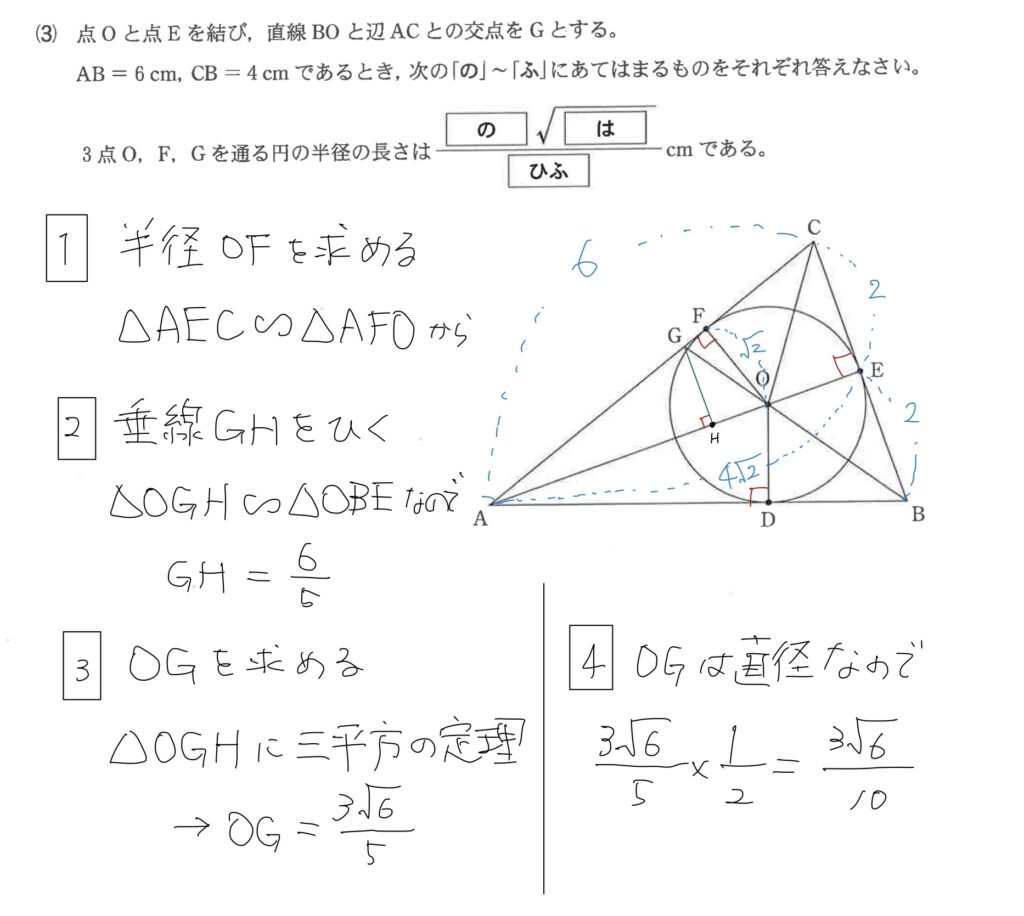 (3) 点Oと点Eを結び，直線BOと辺ACとの交点をGとする。
AB = 6 cm, CB = 4 cm であるとき，次の「の」～「ふ」にあてはまるものをそれぞれ答えなさい。
3点O，F，Gを通る円の半径の長さは の√は / ひふ cm である。
1 半径OFを求める
△AEC∽△AFOから
2 垂線GHをひく
△OGH∽△OBEなので
GH = 6/5
3 OGを求める
△OGHに三平方の定理
→ OG = 3√6/5
4 OGは直径なので
3√6/5 × 1/2 = 3√6/10
C
6
2
F
G
√2
O
E
H
2
4√2
A
D
B